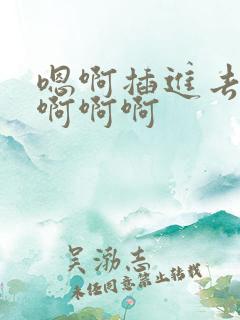 嗯啊插进去
啊啊啊
吴渤志
未经同意禁止转载